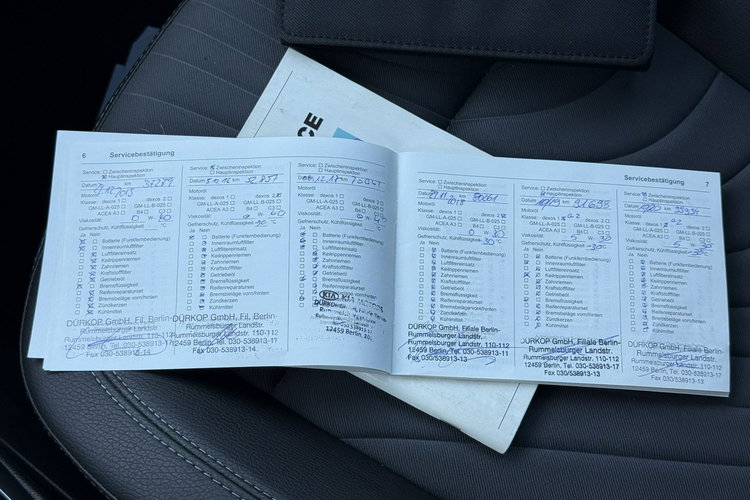 ICE
6 Servicebestätigung
Service: Zwischeninspektion
Hauptinspektion
Datum km 37289
Motoröl
Klasse: dexos 1 dexos 2
GM-LL-A-025 GM-LL-B-025
ACEA A3 B4 C3
Viskosität: 0 W
Gefrierschutz, Kühlflüssigkeit: °C
Ja Nein
Batterie (Funkfernbedienung)
Innenraumluftfilter
Luftfiltereinsatz
Keilrippenriemen
Zahnriemen
Kraftstofffilter
Getriebeöl
Bremsflüssigkeit
Reifenreparaturset
Bremsbeläge vorn/hinten
Zündkerzen
Kühlmittel
DÜRKOP GmbH, Fil. Berlin
Rummelsburger Landstr.
12459 Berlin, Tel. 030-538913-
Fax 030/538913-14
Service: Zwischeninspektion
Hauptinspektion
Datum km 52857
Motoröl
Klasse: dexos 1 dexos 2
GM-LL-A-025 GM-LL-B-025
ACEA A3 B4 C3
Viskosität: 0 W 40
Gefrierschutz, Kühlflüssigkeit -30 °C
Ja Nein
Batterie (Funkfernbedienung)
Innenraumluftfilter
Luftfiltereinsatz
Keilrippenriemen
Zahnriemen
Kraftstofffilter
Getriebeöl
Bremsflüssigkeit
Reifenreparaturset
Bremsbeläge vorn/hinten
Zündkerzen
Kühlmittel
DÜRKOP GmbH, Fil. Berlin
Rummelsburger Landstr. 110-112
12459 Berlin, Tel. 030-538913-11
Fax 030/538913-14
Service: Zwischeninspektion
Hauptinspektion
Datum km
Motoröl
Klasse: dexos 1 dexos 2
GM-LL-A-025 GM-LL-B-025
ACEA A3 B4 C3
Viskosität:
Gefrierschutz, Kühlflüssigkeit °C
Ja Nein
Batterie (Funkfernbedienung)
Innenraumluftfilter
Luftfiltereinsatz
Keilrippenriemen
Zahnriemen
Kraftstofffilter
Getriebeöl
Bremsflüssigkeit
Reifenreparaturset
Bremsbeläge vorn/hinten
Zündkerzen
KIA
DÜRKOP
12459 Berlin
Servicebestätigung 7
Service: Zwischeninspektion
Hauptinspektion
Datum km 80061
Motoröl
Klasse: dexos 1 dexos 2
GM-LL-A-025 GM-LL-B-025
ACEA A3 B4 C3
Viskosität: 0 W 30
Gefrierschutz, Kühlflüssigkeit -30 °C
Ja Nein
Batterie (Funkfernbedienung)
Innenraumluftfilter
Luftfiltereinsatz
Keilrippenriemen
Zahnriemen
Kraftstofffilter
Getriebeöl
Bremsflüssigkeit
Reifenreparaturset
Bremsbeläge vorn/hinten
Zündkerzen
Kühlmittel
DÜRKOP GmbH, Filiale Berlin-
Rummelsburger Landstr. 110-112
12459 Berlin, Tel. 030-538913-11
Fax 030/538913-13
Service: Zwischeninspektion
Hauptinspektion
Datum km 91698
Motoröl
Klasse: dexos 1 dexos 2
GM-LL-A-025 GM-LL-B-025
ACEA A3 B4 C3
Viskosität: W 30
Gefrierschutz, Kühlflüssigkeit °C
Ja Nein
Batterie (Funkfernbedienung)
Innenraumluftfilter
Luftfiltereinsatz
Keilrippenriemen
Zahnriemen
Kraftstofffilter
Getriebeöl
Bremsflüssigkeit
Reifenreparaturset
Bremsbeläge vorn/hinten
Zündkerzen
Kühlmittel
DÜRKOP GmbH, Filiale Berlin-
Rummelsburger Landstr. 110-112
12459 Berlin, Tel. 030-538913-17
Fax 030/538913-13
Service: Zwischeninspektion
Hauptinspektion
Datum km
Motoröl
Klasse: dexos 1 dexos 2
GM-LL-A-025 GM-LL-B-025
ACEA A3 B4 C3
Viskosität: 5 W
Gefrierschutz, Kühlflüssigkeit °C
Ja Nein
Batterie (Funkfernbedienung)
Innenraumluftfilter
Luftfiltereinsatz
Keilrippenriemen
Zahnriemen
Kraftstofffilter
Getriebeöl
Bremsflüssigkeit
Reifenreparaturset
Bremsbeläge vorn/hinten
Zündkerzen
Kühlmittel
DÜRKOP GmbH, Filiale Berlin-
Rummelsburger Landstr. 110-112
12459 Berlin, Tel. 030-538913-17
Fax 030/538913-13